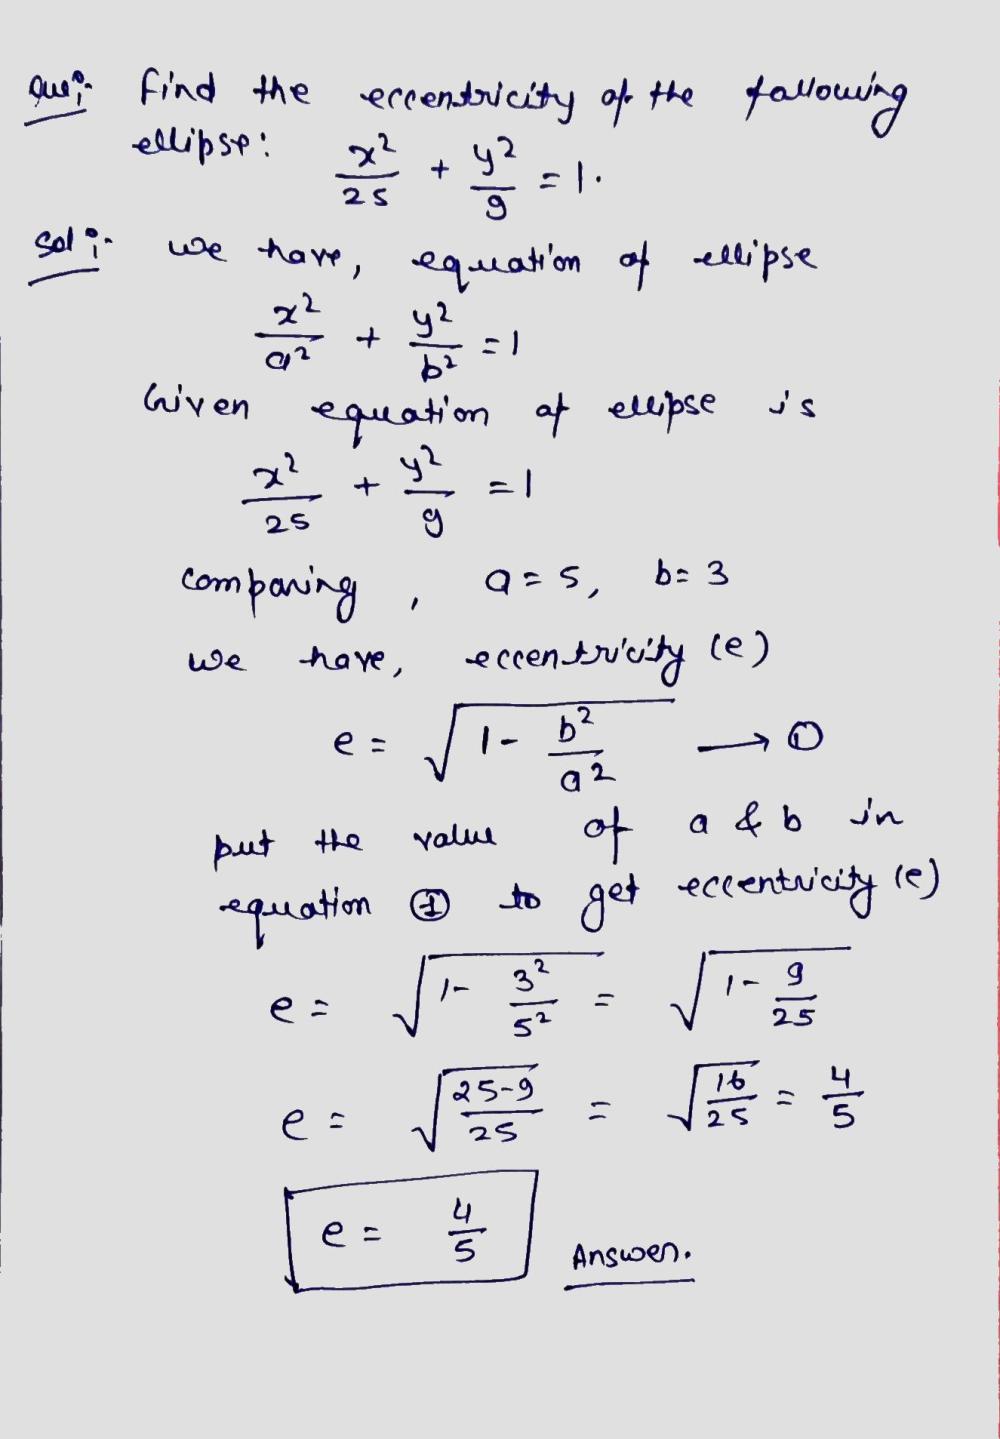 Que:- find the eccentricity of the following
ellipse: x²/25 + y²/9 = 1.
Sol:- we have, equation of ellipse
x²/a² + y²/b² = 1
Given equation of ellipse is
x²/25 + y²/9 = 1
comparing, a = 5, b = 3
we have, eccentricity (e)
e = √(1 - b²/a²) → ①
put the value of a & b in
equation ① to get eccentricity (e)
e = √(1 - 3²/5²) = √(1 - 9/25)
e = √((25-9)/25) = √(16/25) = 4/5
e = 4/5 Answer.